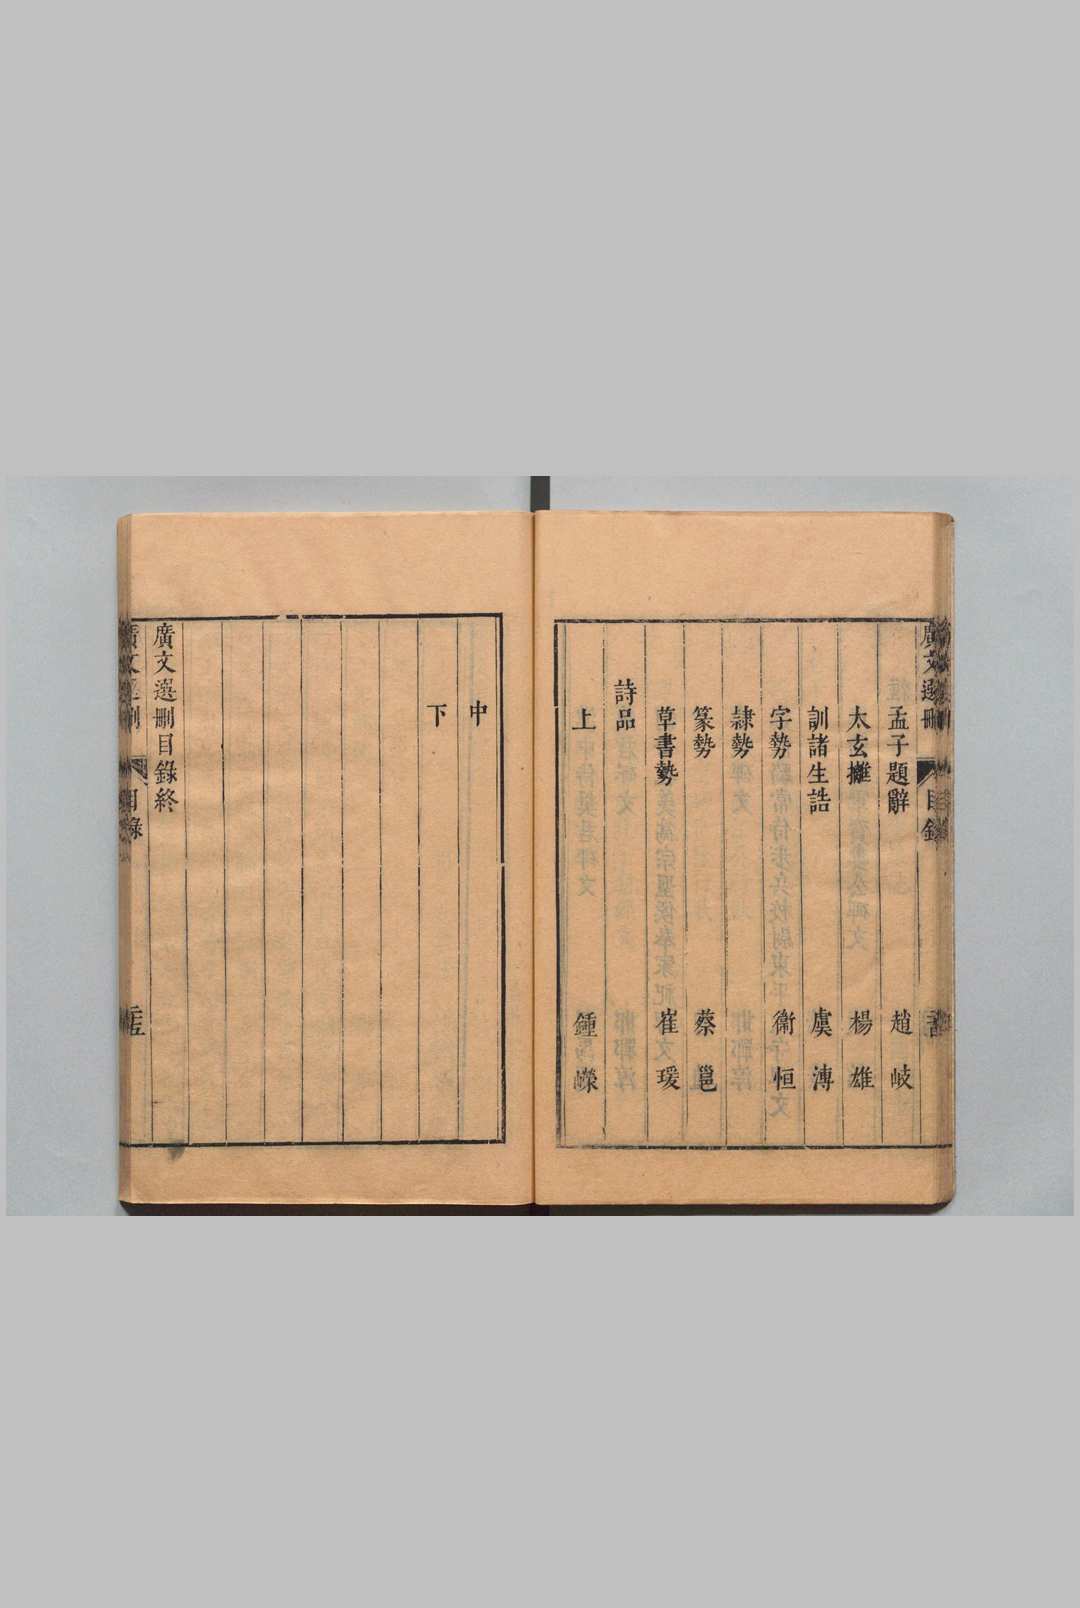 廣文選刪 目錄
孟子題辭 趙岐
太玄攡 楊雄
訓諸生誥 虞溥
字勢 衛恒
隸勢
篆勢 蔡邕
草書勢 崔瑗
詩品
上 鍾嶸
中
下
廣文選刪目錄終
廣文選刪 目錄